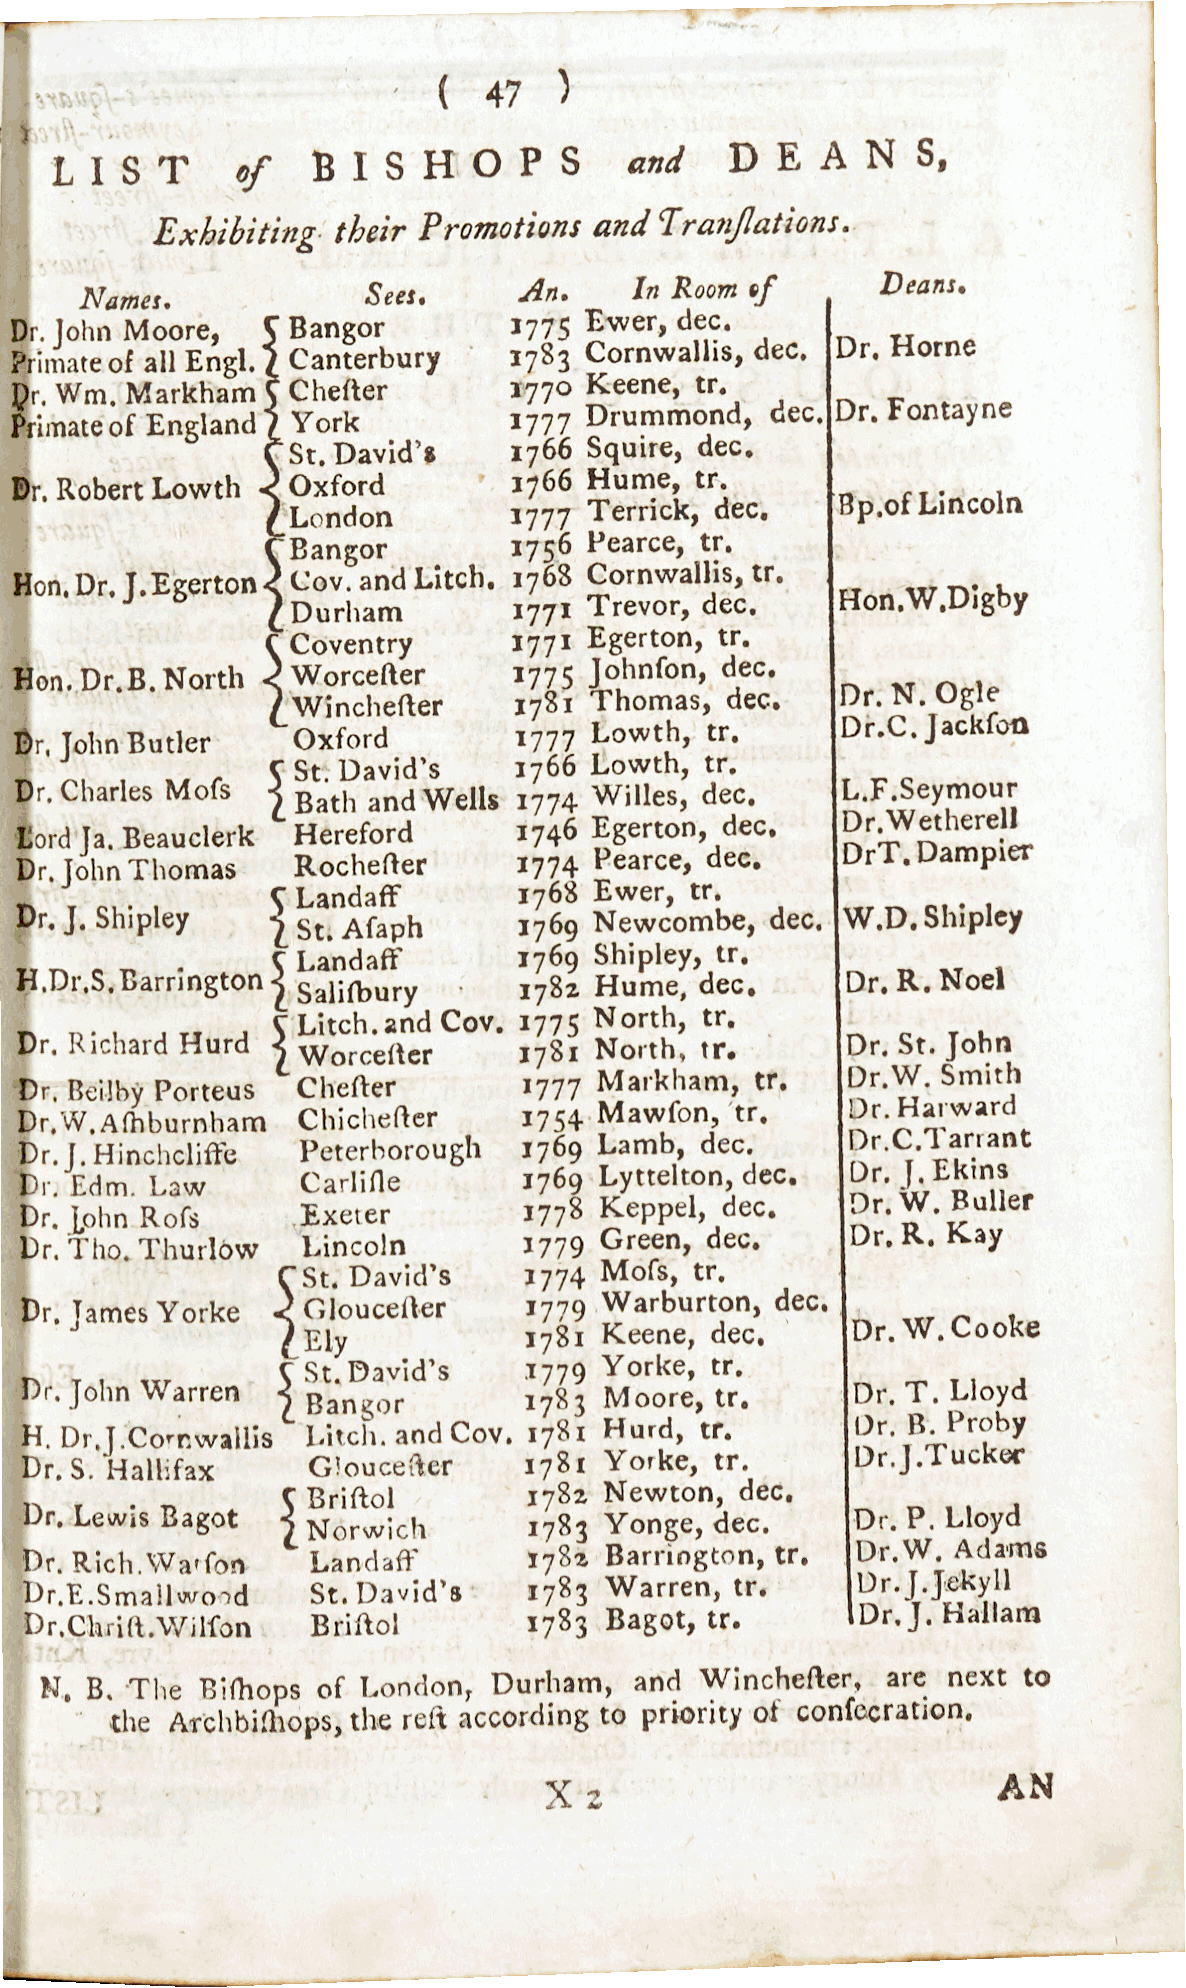 ( 47 )
LIST of BISHOPS and DEANS,
Exhibiting their Promotions and Tranſlations.
Names. Sees. An. In Room of Deans.
Dr. John Moore, Bangor 1775 Ewer, dec.
Primate of all Engl. Canterbury 1783 Cornwallis, dec. Dr. Horne
Dr. Wm. Markham Cheſter 1770 Keene, tr.
Primate of England York 1777 Drummond, dec. Dr. Fontayne
St. David's 1766 Squire, dec.
Dr. Robert Lowth Oxford 1766 Hume, tr.
London 1777 Terrick, dec. Bp. of Lincoln
Bangor 1756 Pearce, tr.
Hon. Dr. J. Egerton Cov. and Litch. 1768 Cornwallis, tr.
Durham 1771 Trevor, dec. Hon. W. Digby
Coventry 1771 Egerton, tr.
Hon. Dr. B. North Worceſter 1775 Johnſon, dec.
Wincheſter 1781 Thomas, dec. Dr. N. Ogle
Dr. John Butler Oxford 1777 Lowth, tr. Dr. C. Jackſon
St. David's 1766 Lowth, tr.
Dr. Charles Moſs Bath and Wells 1774 Willes, dec. L. F. Seymour
Lord Ja. Beauclerk Hereford 1746 Egerton, dec. Dr. Wetherell
Dr. John Thomas Rocheſter 1774 Pearce, dec. Dr T. Dampier
Landaff 1768 Ewer, tr.
Dr. J. Shipley St. Aſaph 1769 Newcombe, dec. W. D. Shipley
Landaff 1769 Shipley, tr.
H. Dr. S. Barrington Saliſbury 1782 Hume, dec. Dr. R. Noel
Litch. and Cov. 1775 North, tr.
Dr. Richard Hurd Worceſter 1781 North, tr. Dr. St. John
Dr. Beilby Porteus Cheſter 1777 Markham, tr. Dr. W. Smith
Dr. W. Aſhburnham Chicheſter 1754 Mawſon, tr. Dr. Harward
Dr. J. Hinchcliffe Peterborough 1769 Lamb, dec. Dr. C. Tarrant
Dr. Edm. Law Carliſle 1769 Lyttelton, dec. Dr. J. Ekins
Dr. John Roſs Exeter 1778 Keppel, dec. Dr. W. Buller
Dr. Tho. Thurlow Lincoln 1779 Green, dec. Dr. R. Kay
St. David's 1774 Moſs, tr.
Dr. James Yorke Glouceſter 1779 Warburton, dec.
Ely 1781 Keene, dec. Dr. W. Cooke
St. David's 1779 Yorke, tr.
Dr. John Warren Bangor 1783 Moore, tr. Dr. T. Lloyd
H. Dr. J. Cornwallis Litch. and Cov. 1781 Hurd, tr. Dr. B. Proby
Dr. S. Hallifax Glouceſter 1781 Yorke, tr. Dr. J. Tucker
Briſtol 1782 Newton, dec.
Dr. Lewis Bagot Norwich 1783 Yonge, dec. Dr. P. Lloyd
Dr. Rich. Watſon Landaff 1782 Barrington, tr. Dr. W. Adams
Dr. E. Smallwood St. David's 1783 Warren, tr. Dr. J. Jekyll
Dr. Chriſt. Wilſon Briſtol 1783 Bagot, tr. Dr. J. Hallam
N. B. The Biſhops of London, Durham, and Wincheſter, are next to
the Archbiſhops, the reſt according to priority of conſecration.
X 2 AN